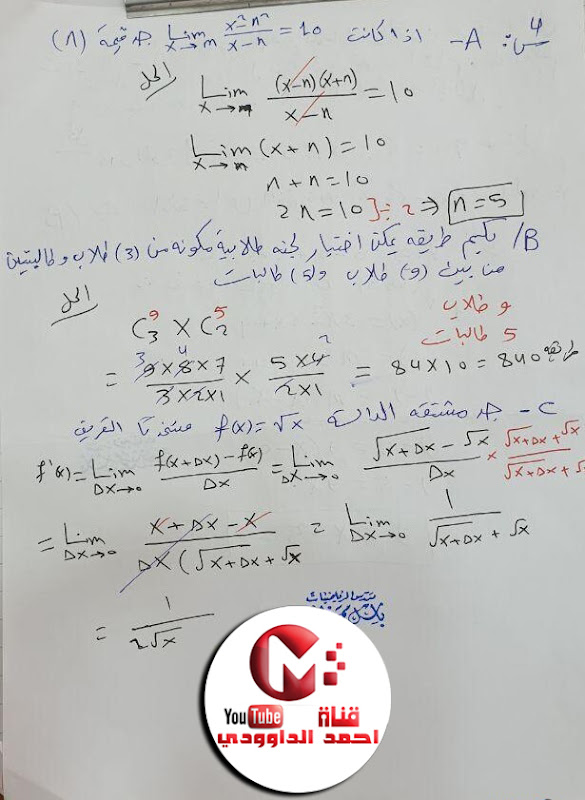 س٤: A- اذا كانت Lim x→n x²-n²/x-n = 10 جد قيمة (n)
الحل
Lim x→n (x-n)(x+n)/x-n = 10
Lim x→n (x+n) = 10
n+n=10
2n=10]÷2 ⇒ n=5
B/ بكم طريقه يمكن اختيار لجنه طلابية مكونه من (3) طلاب وطالبتين
من بين (9) طلاب و(5) طالبات
الحل
9 طلاب
5 طالبات
C⁹₃ × C⁵₂
= 9×8×7/3×2×1 × 5×4/2×1 = 84×10 = 840 طريقه
C- جد مشتقه الدالة f(x)=√x مستخدما التعريف
f'(x)= Lim Δx→0 f(x+Δx)-f(x)/Δx = Lim Δx→0 √x+Δx - √x/Δx × √x+Δx + √x/√x+Δx + √x
= Lim Δx→0 x+Δx-x/Δx(√x+Δx + √x = Lim Δx→0 1/√x+Δx + √x
= 1/2√x
مدرس الرياضيات
قناة YouTube
احمد الداوودي